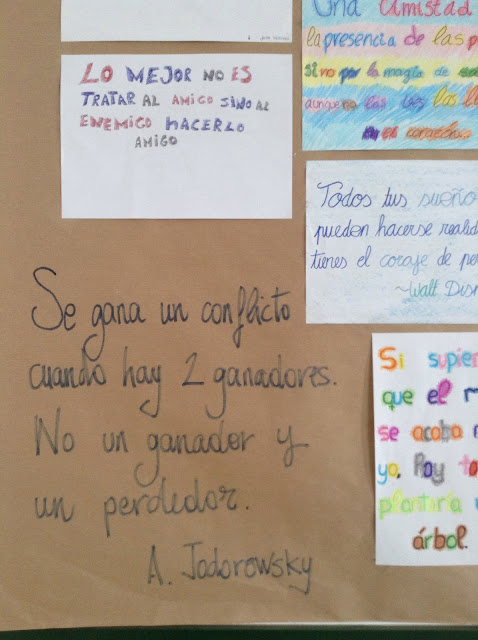 LO MEJOR NO ES
TRATAR AL AMIGO SINO AL
ENEMIGO HACERLO
AMIGO
Una amistad
la presencia de las p
sino por la magia de
aunque no las
corazón.
Todos tus sueño
pueden hacerse realid
tienes el coraje de per
~Walt Disn
Se gana un conflicto
cuando hay 2 ganadores.
No un ganador y
un perdedor.
A. Jodorowsky
Si supier
que el m
se acaba
yo, Hoy ta
plantaría u
árbol.